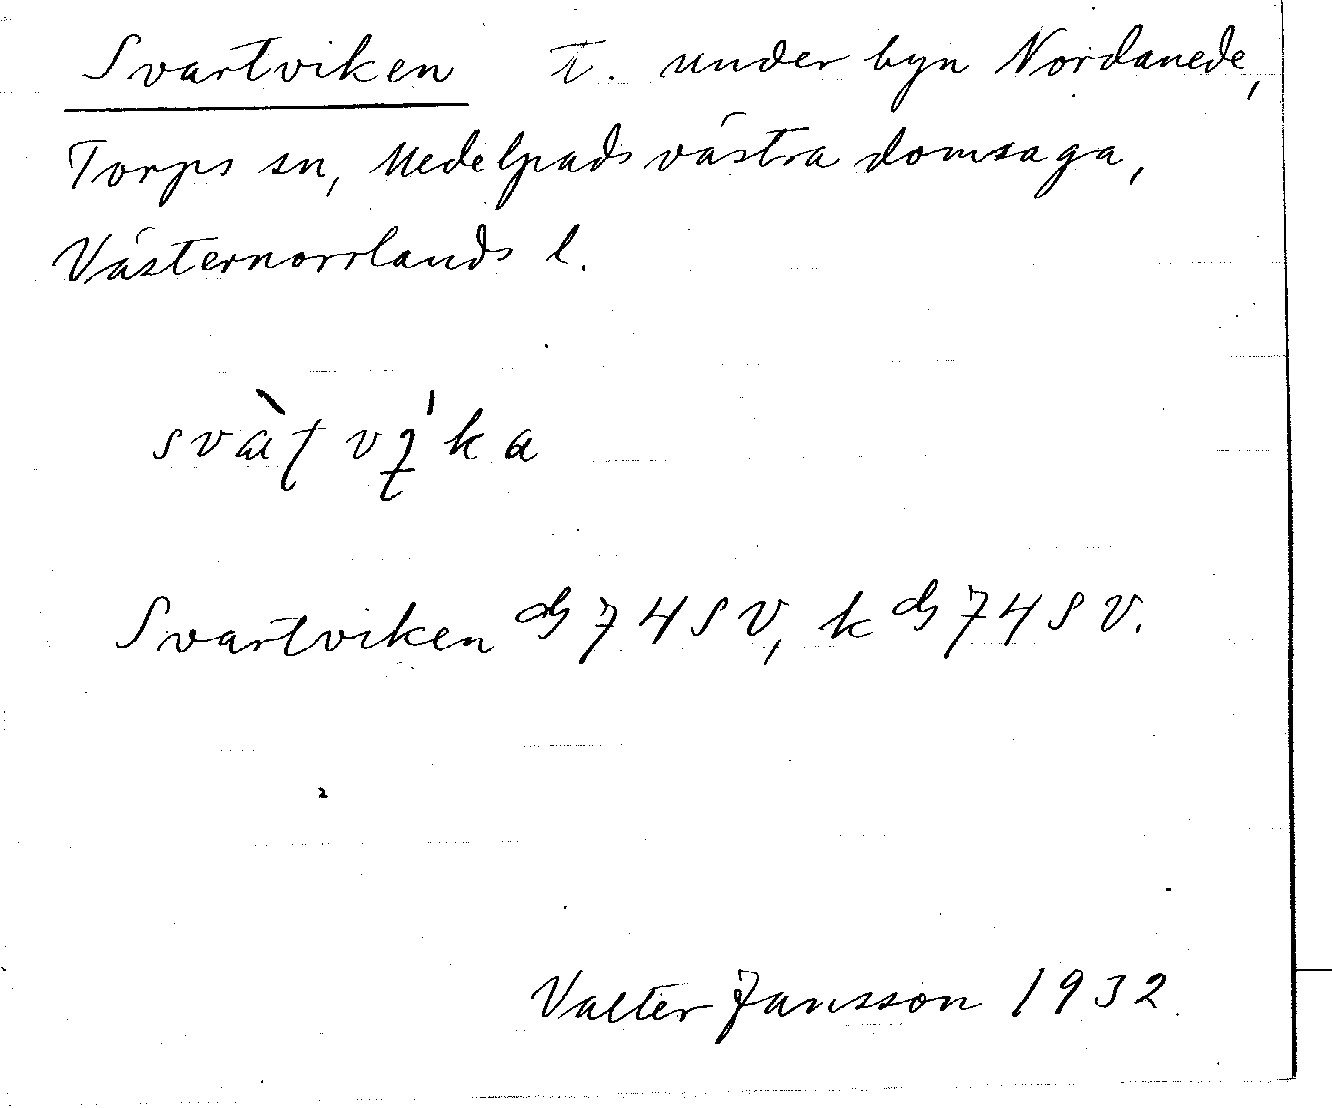 Svartviken t. under byn Nordanede,
Torps sn, Medelpads västra domsaga,
Västernorrlands l.
svàʈvı̨́ka
Svartviken dg 74SV, k dg 74SV.
Valter Jansson 1932